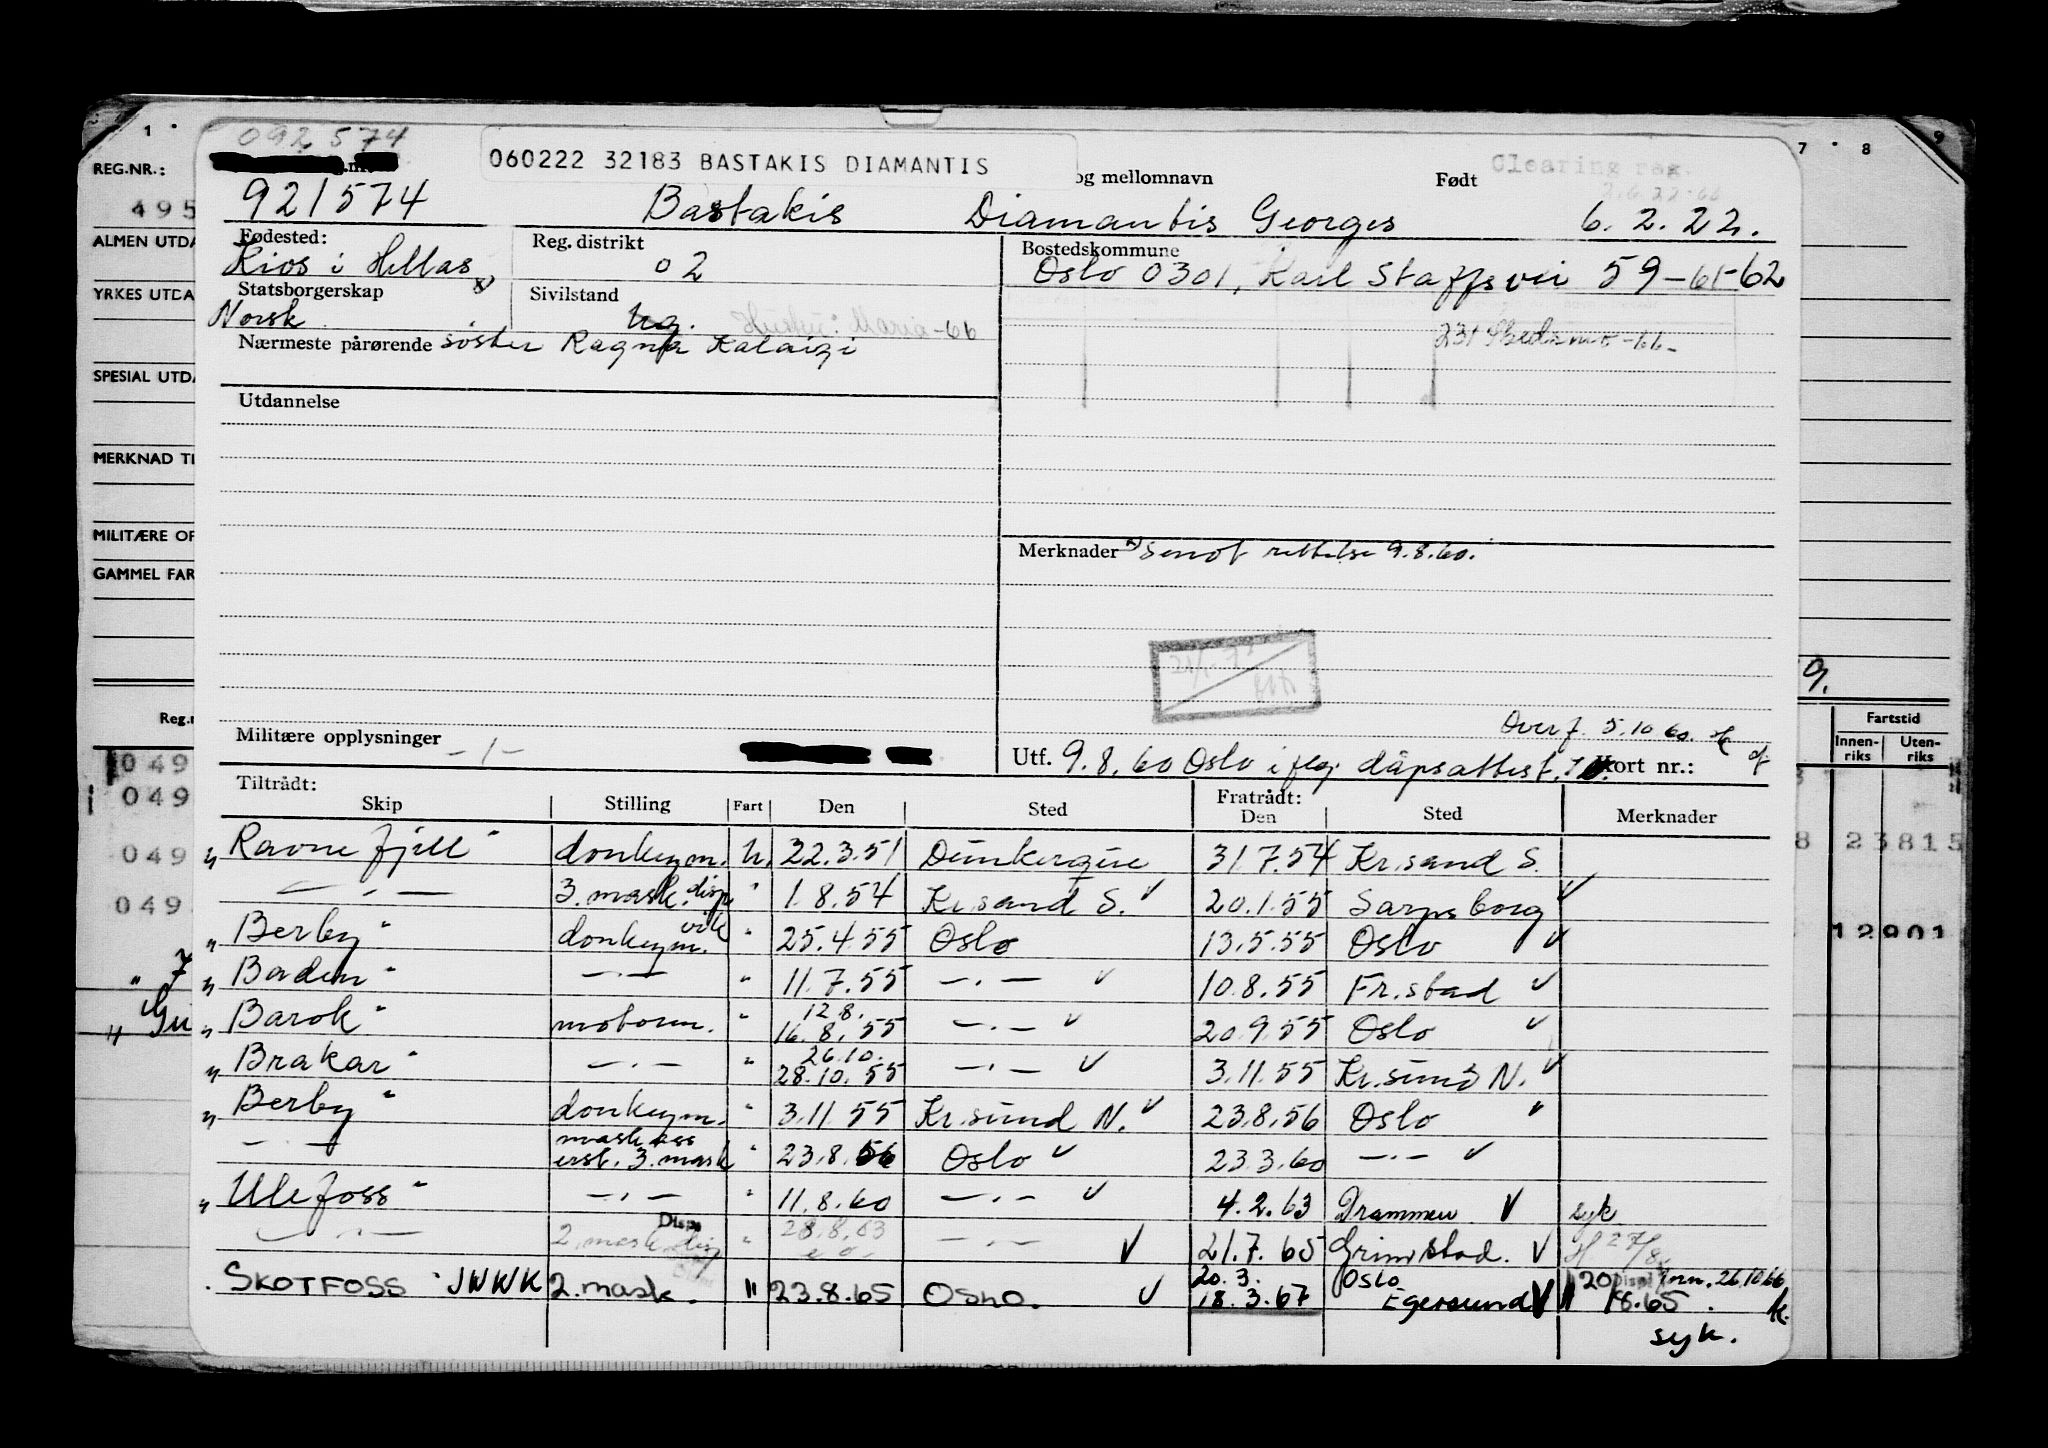 1 7 8 9
092574
REG.NR.:
060222 32183 BASTAKIS DIAMANTIS
og mellomnavn Født Clearing reg.
495
921574 Bastakis Diamantis Georges 6.2.22.
ALMEN UTDA
Fødested: Reg. distrikt Bostedskommune
Kios i Hellas x) 02 Oslo 0301, Karl Staffsvei 59-61-62
YRKES UTDA
Statsborgerskap Sivilstand
Norsk ug. Hustru: Maria -66
Nærmeste pårørende søster Ragna Kalaizi
231 Skedsmo -66-
SPESIAL UTDA
Utdannelse
MERKNAD TI
MILITÆRE OP
Merknader x) Smnf rettelse 9.8.60.
GAMMEL FAR
Reg.n
Overf. 5.10 60.
Fartstid
Militære opplysninger -1-
Utf. 9.8.60 Oslo i flg. dåpsattest. Kort nr.:
Innen-riks Uten-riks
Tiltrådt: Fratrådt:
Skip Stilling Fart Den Sted Den Sted Merknader
049
049
049
049
8 23815
12901
"Ravnefjell" donkeym. u. 22.3.51 Dunkerque 31.7.54 Kr.sand S.
— . — 3. mask. disp " 1.8.54 Kr.sand S. ✓ 20.1.55 Sarpsborg ✓
"Berby" donkeym. vik " 25.4.55 Oslo 13.5.55 Oslo ✓
"Baden" — . — " 11.7.55 — . — ✓ 10.8.55 Fr.stad ✓
"Barok" motorm. " 12.8. 16.8.55 — . — ✓ 20.9.55 Oslo ✓
"Brakar" — . — " 26.10. 28.10.55 — . — ✓ 3.11.55 Kr.sund N. ✓
"Berby" donkeym. " 3.11.55 Kr.sund N. ✓ 23.8.56 Oslo "
— . — mask ass erst. 3. mask " 23.8.56 Oslo ✓ 23.3.60 — . — ✓
"Ulefoss" — . — " 11.8.60 — . — ✓ 4.2.63 Drammen ✓ syk
— . — 2. mask. Disp " 28.8.63 — . — ✓ 21.7.65 Grimstad. ✓
SKOTFOSS" JWWK 2. mask. " 23.8.65 Oslo. ✓ 20.3. 18.3.67 Oslo Egersund ✓ " 20/ 18.65. 26.10 66
syk.